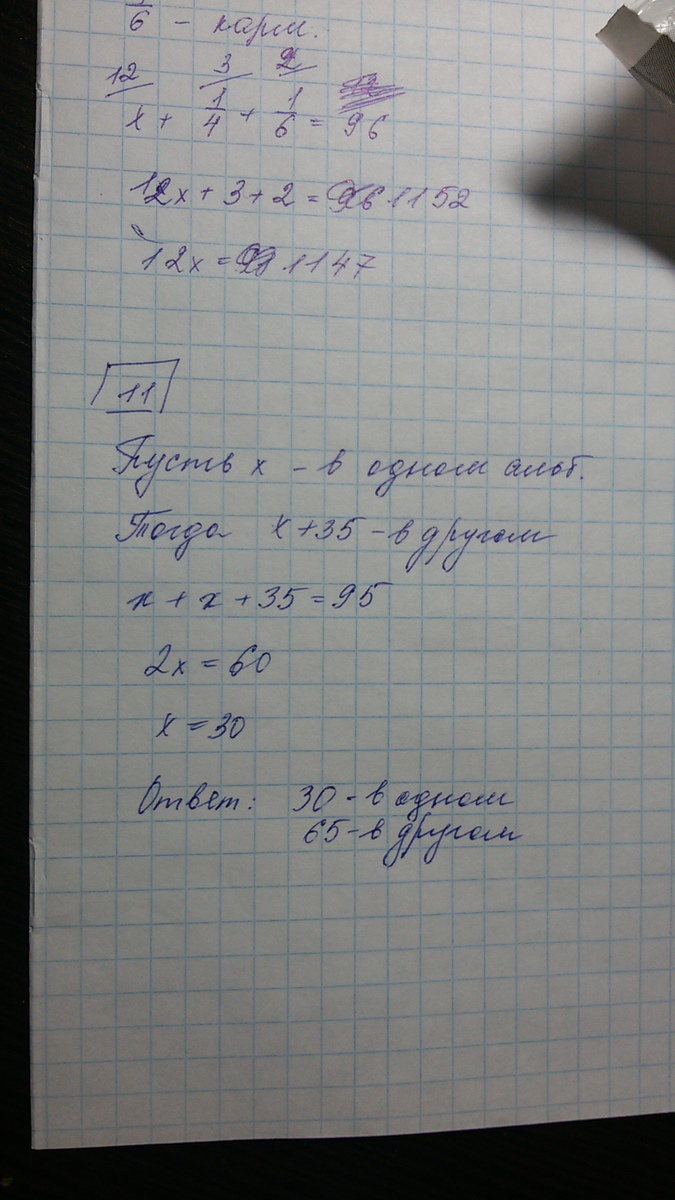 1/6 - карм.
12 3 2
x + 1/4 + 1/6 = 96
12x + 3 + 2 = 1152
12x = 1147
11
Пусть x - в одном альб.
Тогда x+35 - в другом
x + x + 35 = 95
2x = 60
x = 30
Ответ: 30 - в одном
65 - в другом